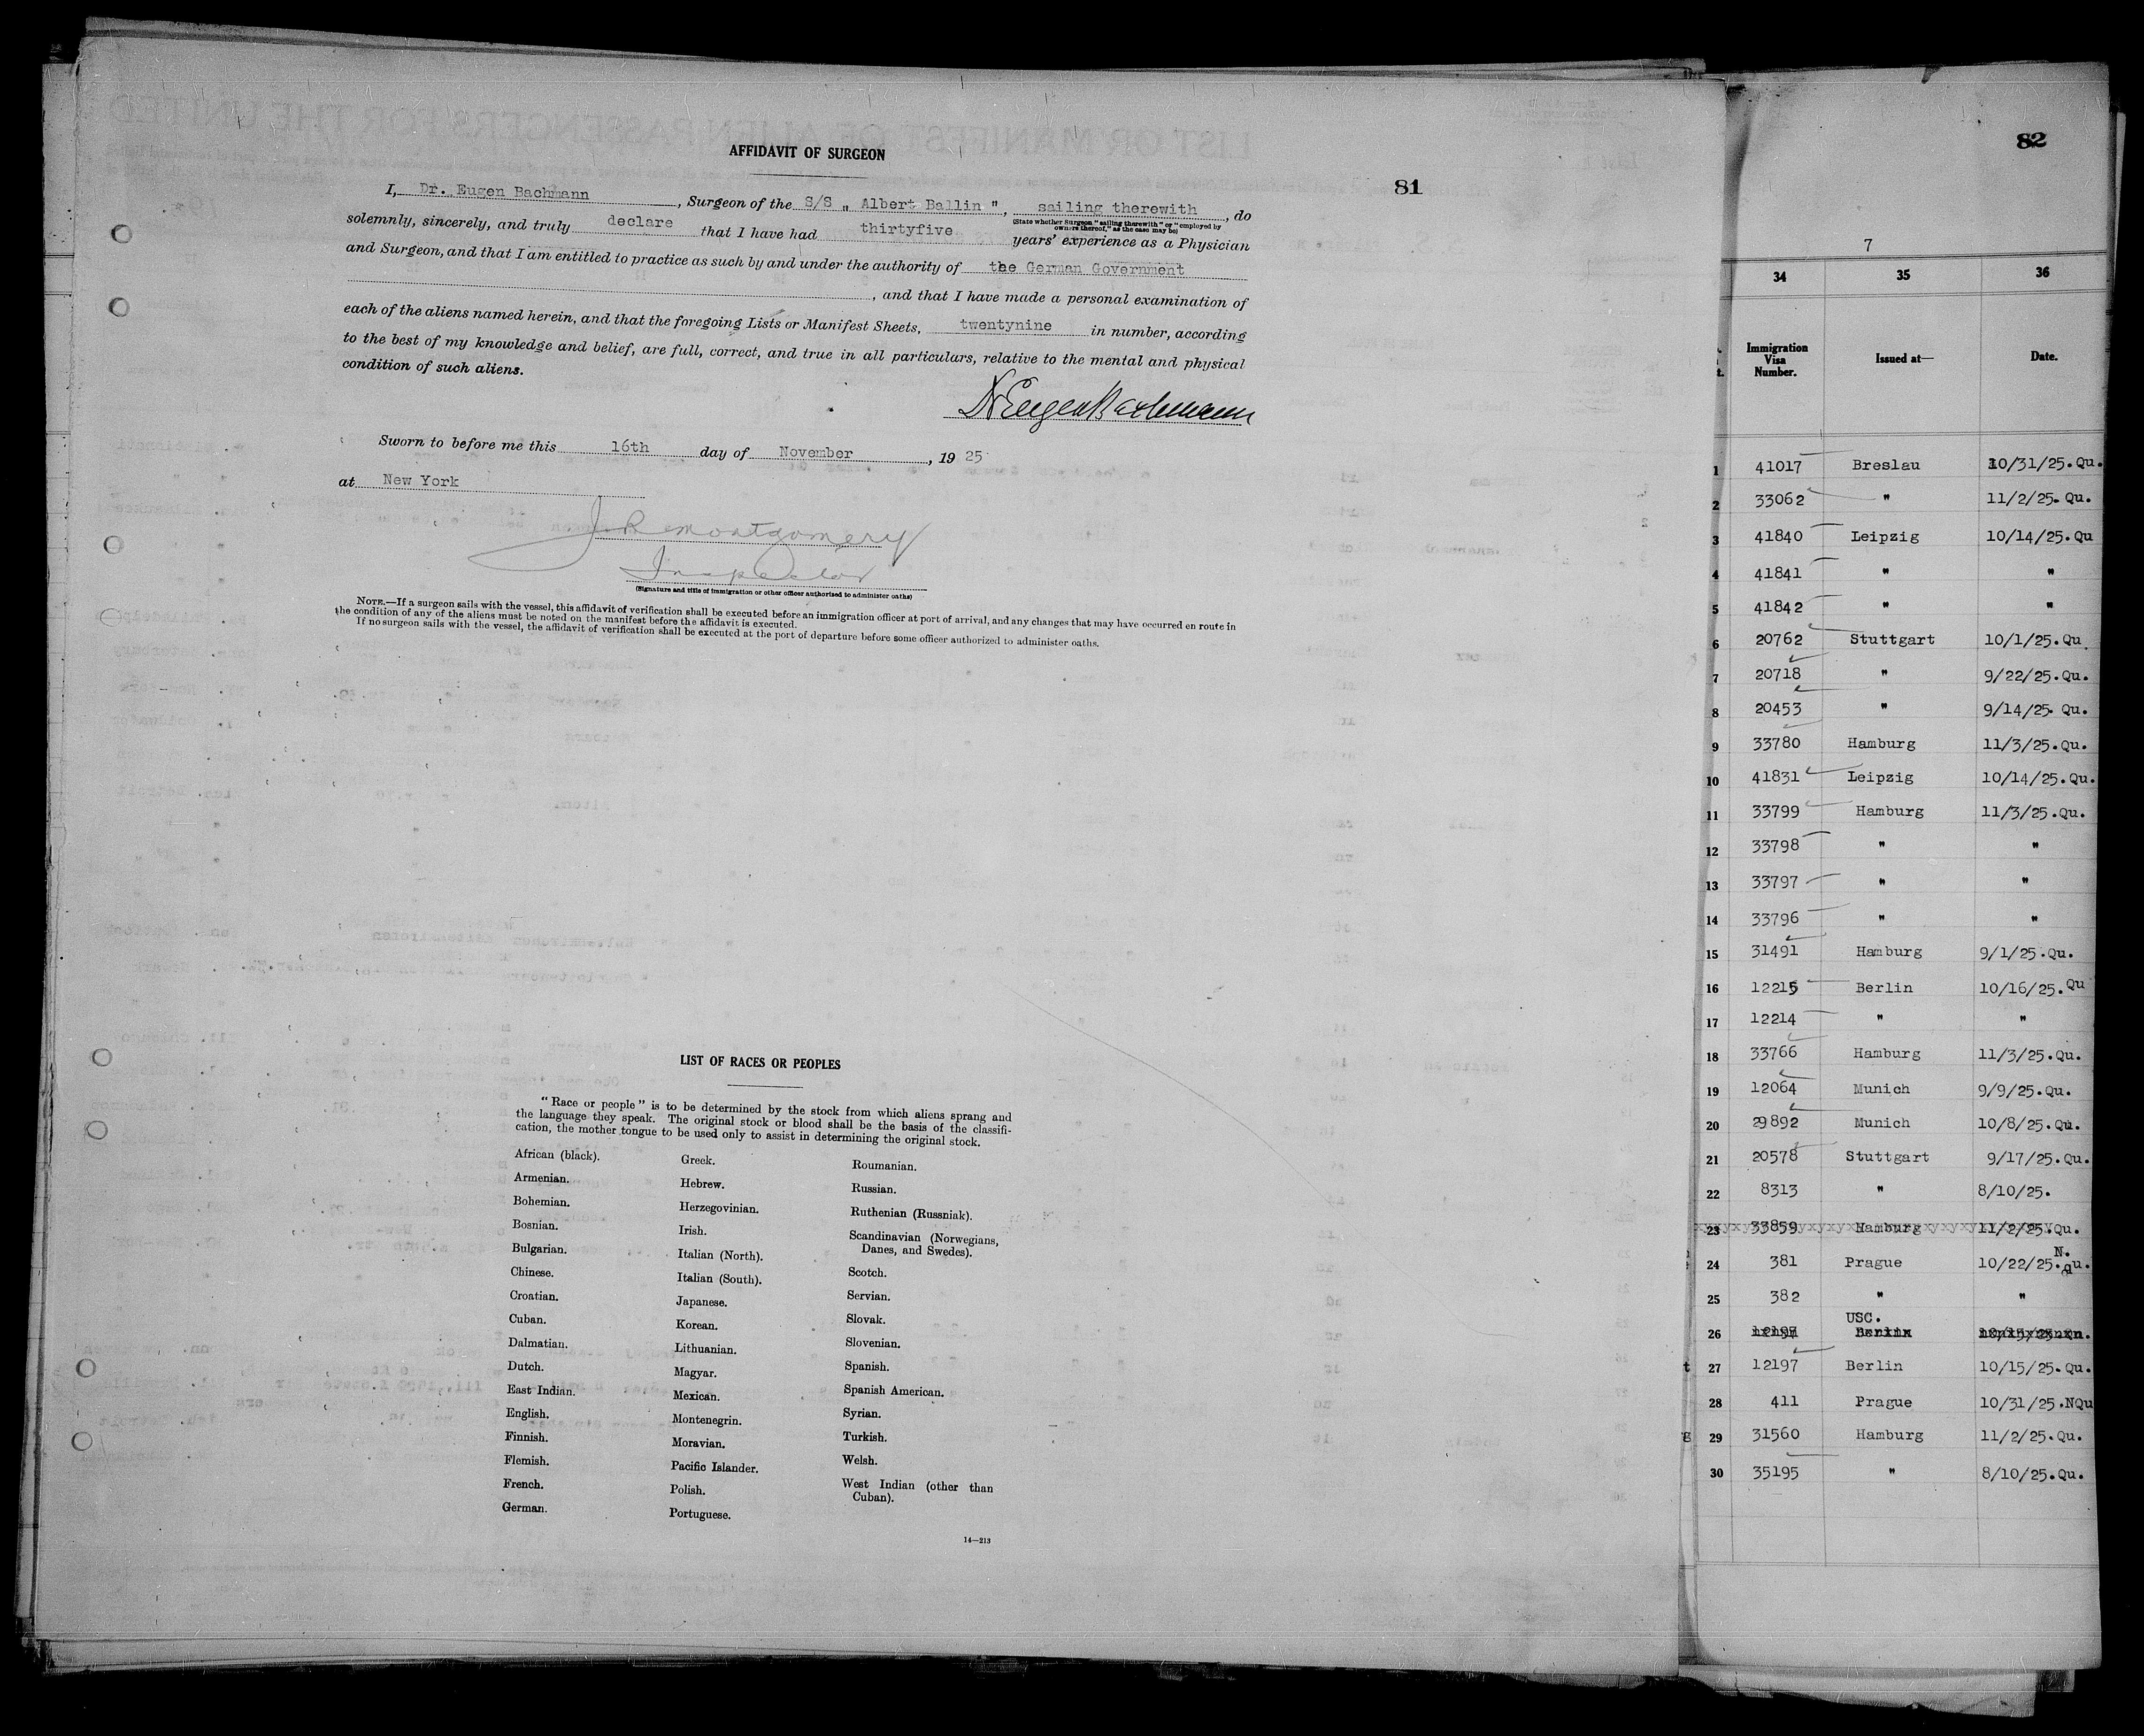 AFFIDAVIT OF SURGEON
81
I, Dr. Eugen Bachmann, Surgeon of the S/S „ Albert Ballin ", sailing therewith, do
(State whether Surgeon "sailing therewith" or "employed by owners thereof," as the case may be)
solemnly, sincerely, and truly declare that I have had thirtyfive years' experience as a Physician
and Surgeon, and that I am entitled to practice as such by and under the authority of the German Government
, and that I have made a personal examination of
each of the aliens named herein, and that the foregoing Lists or Manifest Sheets, twentynine in number, according
to the best of my knowledge and belief, are full, correct, and true in all particulars, relative to the mental and physical
condition of such aliens.
Dr Eugen Bachmann
Sworn to before me this 16th day of November, 19 25
at New York
J R Montgomery
Inspector
(Signature and title of immigration or other officer authorized to administer oaths)
NOTE.—If a surgeon sails with the vessel, this affidavit of verification shall be executed before an immigration officer at port of arrival, and any changes that may have occurred en route in
the condition of any of the aliens must be noted on the manifest before the affidavit is executed.
If no surgeon sails with the vessel, the affidavit of verification shall be executed at the port of departure before some officer authorized to administer oaths.
LIST OF RACES OR PEOPLES
"Race or people" is to be determined by the stock from which aliens sprang and
the language they speak. The original stock or blood shall be the basis of the classifi-
cation, the mother tongue to be used only to assist in determining the original stock.
African (black).
Armenian.
Bohemian.
Bosnian.
Bulgarian.
Chinese.
Croatian.
Cuban.
Dalmatian.
Dutch.
East Indian.
English.
Finnish.
Flemish.
French.
German.
Greek.
Hebrew.
Herzegovinian.
Irish.
Italian (North).
Italian (South).
Japanese.
Korean.
Lithuanian.
Magyar.
Mexican.
Montenegrin.
Moravian.
Pacific Islander.
Polish.
Portuguese.
Roumanian.
Russian.
Ruthenian (Russniak).
Scandinavian (Norwegians,
Danes, and Swedes).
Scotch.
Servian.
Slovak.
Slovenian.
Spanish.
Spanish American.
Syrian.
Turkish.
Welsh.
West Indian (other than
Cuban).
14—213
82
7
34 35 36
Immigration Visa Number. Issued at— Date.
1 41017 Breslau 10/31/25.Qu.
2 33062 " 11/2/25. Qu.
3 41840 Leipzig 10/14/25.Qu
4 41841 " "
5 41842 " "
6 20762 Stuttgart 10/1/25.Qu.
7 20718 " 9/22/25.Qu.
8 20453 " 9/14/25. Qu.
9 33780 Hamburg 11/3/25.Qu.
10 41831 Leipzig 10/14/25.Qu.
11 33799 Hamburg 11/3/25.Qu.
12 33798 " "
13 33797 " "
14 33796 " "
15 31491 Hamburg 9/1/25.Qu.
16 12215 Berlin 10/16/25.Qu
17 12214 " "
18 33766 Hamburg 11/3/25.Qu.
19 12064 Munich 9/9/25.Qu.
20 29892 Munich 10/8/25.Qu.
21 20578 Stuttgart 9/17/25.Qu.
22 8313 " 8/10/25.
23 33859 Hamburg 11/2/25.Qu.
24 381 Prague 10/22/25.N.Qu.
25 382 " "
26 USC.
27 12197 Berlin 10/15/25.Qu.
28 411 Prague 10/31/25.NQu
29 31560 Hamburg 11/2/25.Qu.
30 35195 " 8/10/25.Qu.